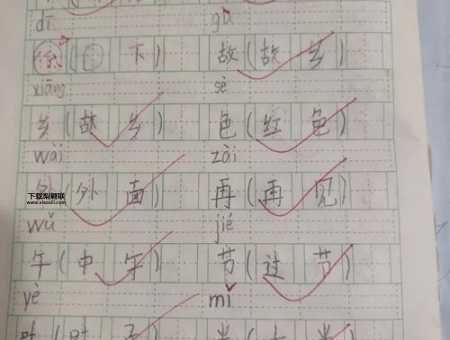 dī gù
下 故(故乡)
xiāng sè
乡(故乡) 色(红色)
wài zài
外(外面) 再(再见)
下载梨颗联
wǔ jié
午(中午) 节(过节)
yè mǐ
叶(叶子) 米(大米)